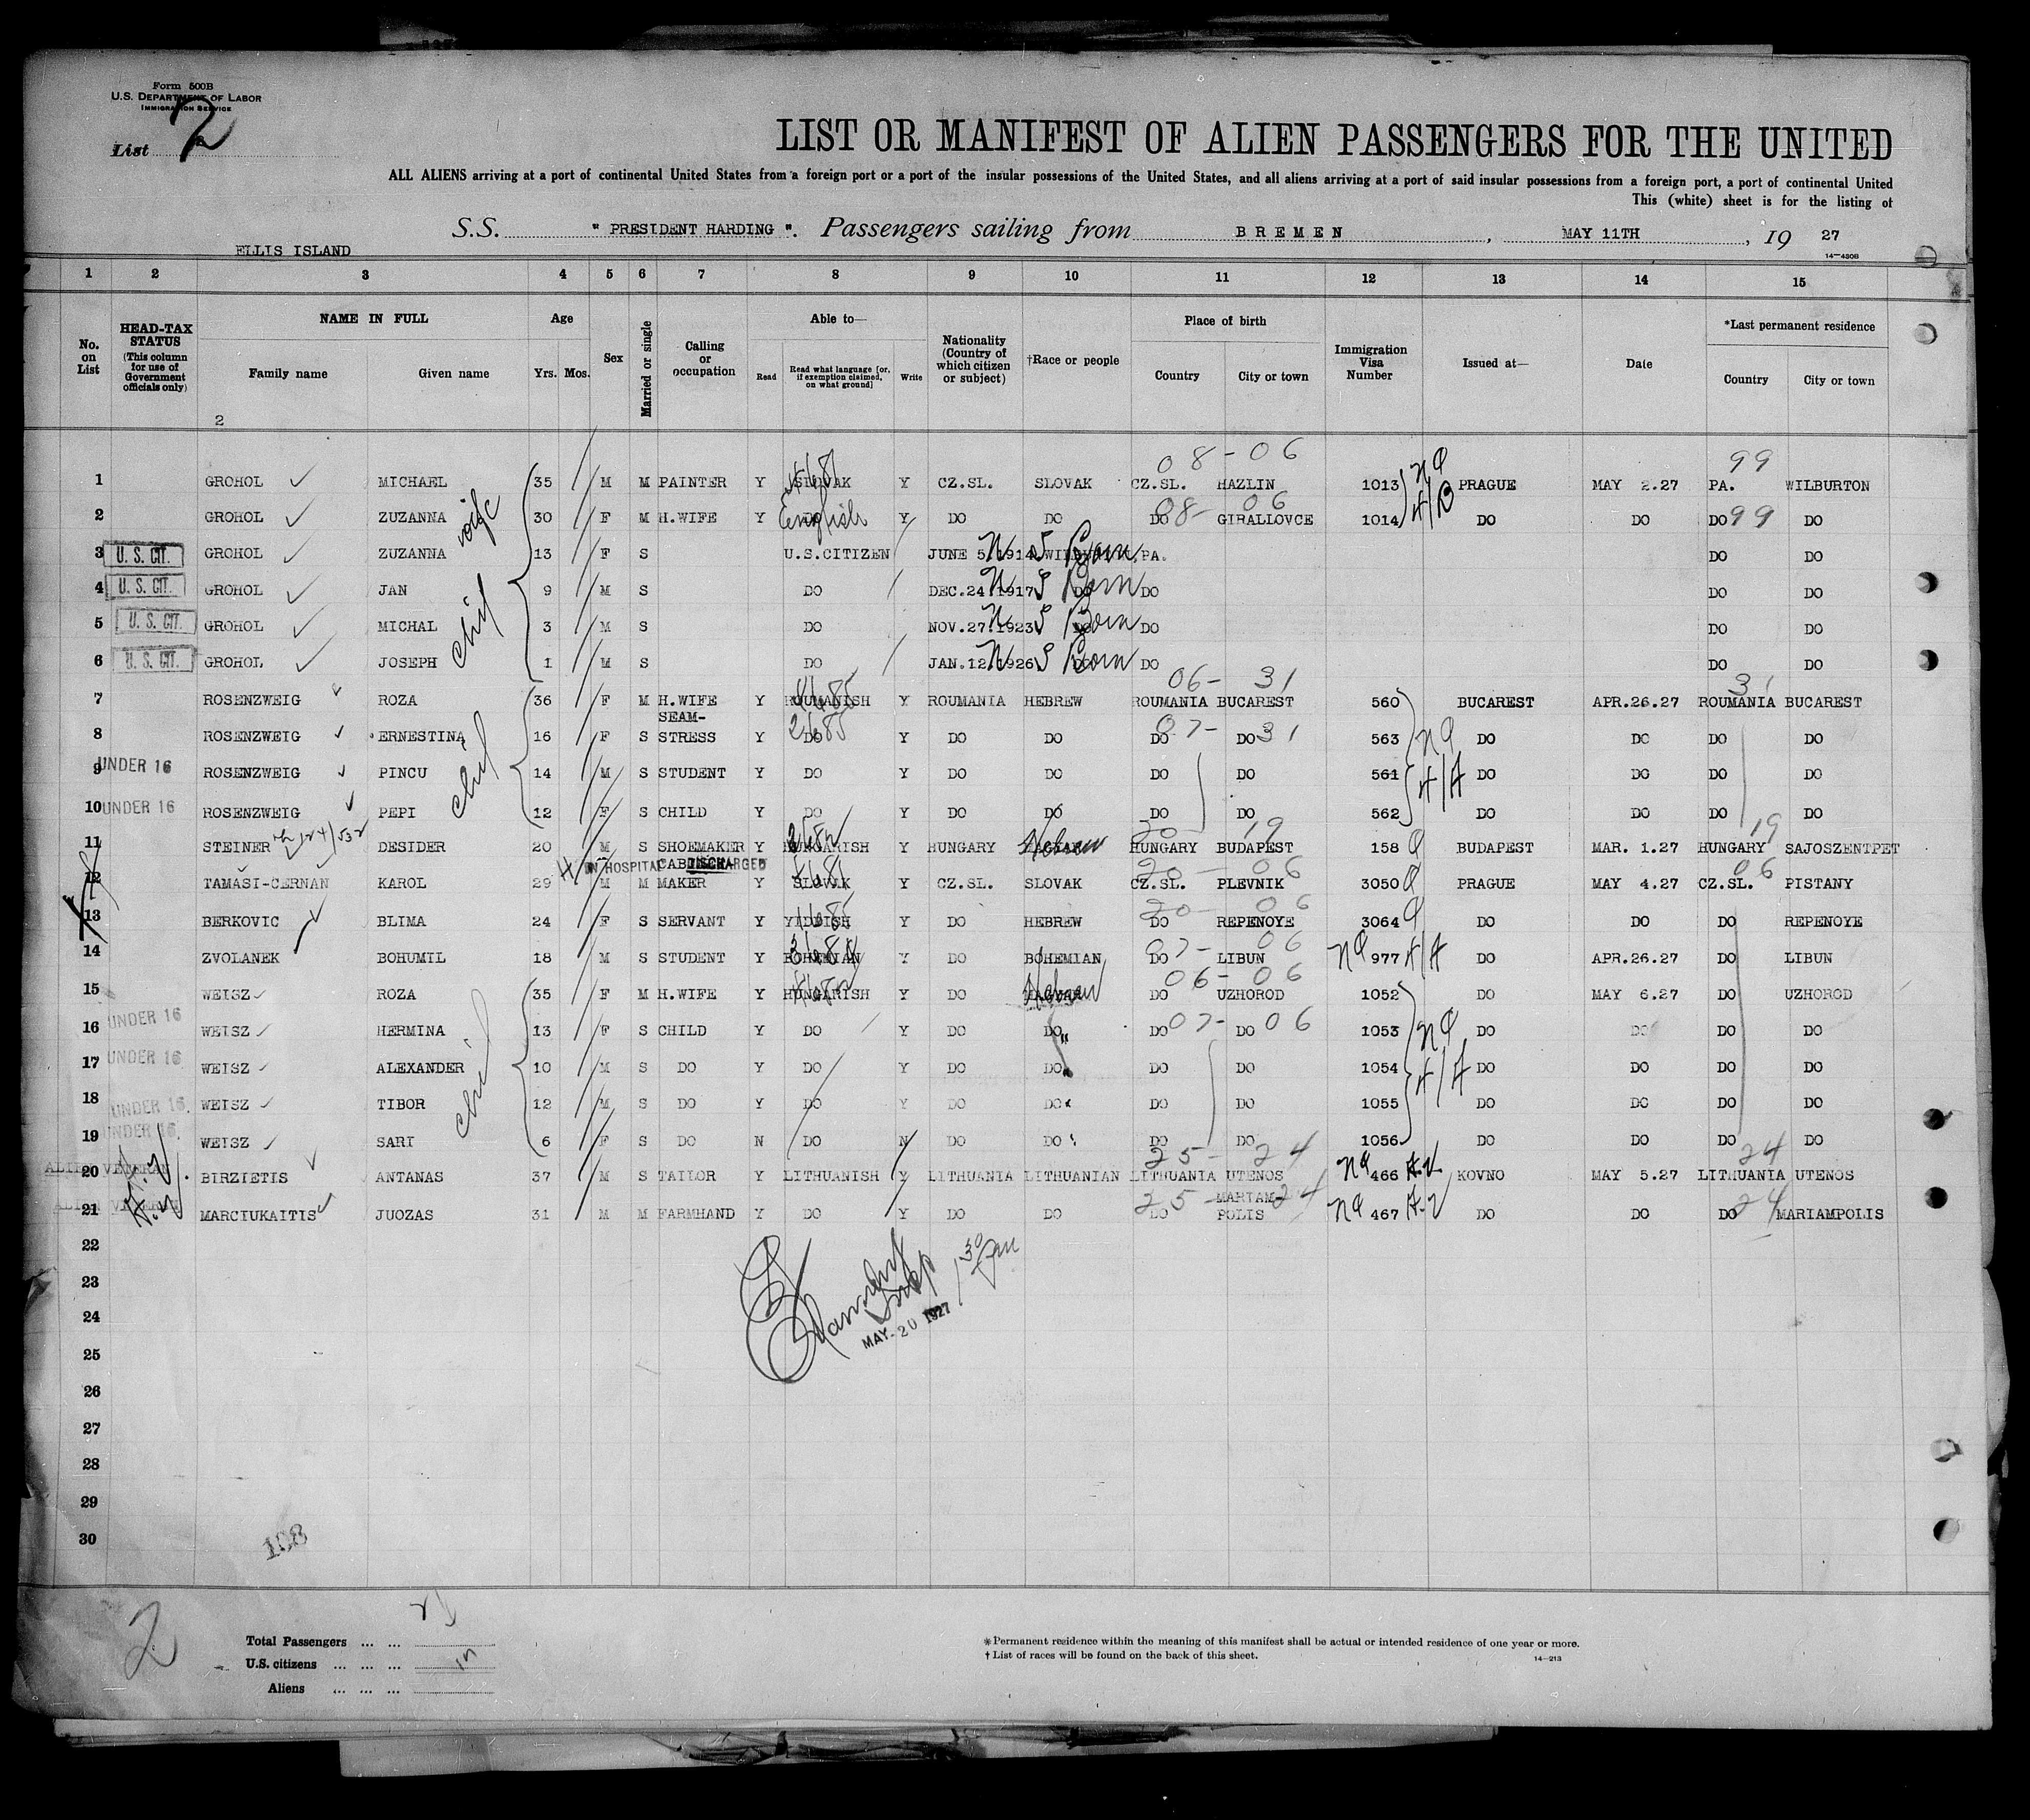 Form 500B
U.S. DEPARTMENT OF LABOR
IMMIGRATION SERVICE
List 2
LIST OR MANIFEST OF ALIEN PASSENGERS FOR THE UNITED
ALL ALIENS arriving at a port of continental United States from a foreign port or a port of the insular possessions of the United States, and all aliens arriving at a port of said insular possessions from a foreign port, a port of continental United
This (white) sheet is for the listing of
S.S. " PRESIDENT HARDING ". Passengers sailing from BREMEN, MAY 11TH, 19 27
ELLIS ISLAND
14—4306
1 2 3 4 5 6 7 8 9 10 11 12 13 14 15
No. on List
HEAD-TAX STATUS (This column for use of Government officials only)
NAME IN FULL Family name Given name
Age Yrs. Mos.
Sex
Married or single
Calling or occupation
Able to— Read Read what language [or, if exemption claimed, on what ground] Write
Nationality (Country of which citizen or subject)
†Race or people
Place of birth Country City or town
Immigration Visa Number
Issued at—
Date
*Last permanent residence Country City or town
2
08-06 99
1 GROHOL MICHAEL 35 M M PAINTER Y SLOVAK Y CZ.SL. SLOVAK CZ.SL. HAZLIN 1013 PRAGUE MAY 2.27 PA. WILBURTON
2 GROHOL ZUZANNA wife 30 F M H.WIFE Y DO English Y DO DO DO 08- 06 GIRALLOVCE 1014 DO DO DO 99 DO
3 U. S. CIT. GROHOL ZUZANNA 13 F S U.S.CITIZEN JUNE 5.1914 Born PA. DO DO
4 U. S. CIT. GROHOL JAN 9 M S DO DEC.24.1917 Born DO DO DO
5 U. S. CIT. GROHOL MICHAL 3 M S DO NOV.27.1923 Born DO DO DO
6 U. S. CIT. GROHOL JOSEPH 1 M S DO JAN.12.1926 Born DO DO DO
06- 31
7 ROSENZWEIG ROZA 36 F M H.WIFE Y ROUMANISH Y ROUMANIA HEBREW ROUMANIA BUCAREST 560 BUCAREST APR.26.27 ROUMANIA BUCAREST
8 ROSENZWEIG ERNESTINA 16 F S SEAM-STRESS Y DO Y DO DO DO 07- DO 31 563 DO DO DO DO
9 UNDER 16 ROSENZWEIG PINCU 14 M S STUDENT Y DO Y DO DO DO DO 561 DO DO DO DO
10 UNDER 16 ROSENZWEIG PEPI 12 F S CHILD Y DO Y DO DO DO DO 562 DO DO DO DO
20- 19 19
11 STEINER DESIDER 20 M S SHOEMAKER Y HUNGARISH Y HUNGARY Hebrew HUNGARY BUDAPEST 158 BUDAPEST MAR. 1.27 HUNGARY SAJOSZENTPET
IN HOSPITAL DISCHARGED
20- 06 06
12 TAMÁSI-CERNAN KAROL 29 M M MAKER Y SLOVAK Y CZ.SL. SLOVAK CZ.SL. PLEVNIK 3050 PRAGUE MAY 4.27 CZ.SL. PISTANY
20- 06
13 BERKOVIC BLIMA 24 F S SERVANT Y YIDDISH Y DO HEBREW DO REPENOYE 3064 DO DO DO REPENOYE
14 ZVOLANEK BOHUMIL 18 M S STUDENT Y BOHEMIAN Y DO BOHEMIAN DO 07- 06 LIBUN 977 DO APR.26.27 DO LIBUN
06- 06
15 WEISZ ROZA 35 F M H.WIFE Y HUNGARISH Y DO Hebrew DO UZHOROD 1052 DO MAY 6.27 DO UZHOROD
16 UNDER 16 WEISZ HERMINA 13 F S CHILD Y DO Y DO DO DO 07- DO 06 1053 DO DO DO DO
17 UNDER 16 WEISZ ALEXANDER 10 M S DO Y DO Y DO DO DO DO 1054 DO DO DO DO
18 UNDER 16 WEISZ TIBOR 12 M S DO Y DO Y DO DO DO DO 1055 DO DO DO DO
19 UNDER 16 WEISZ SARI 6 F S DO N DO N DO DO DO DO 1056 DO DO DO DO
25- 24 24
20 ALIEN VETERAN BIRZIETIS ANTANAS 37 M S TAILOR Y LITHUANISH Y LITHUANIA LITHUANIAN LITHUANIA UTENOS 466 KOVNO MAY 5.27 LITHUANIA UTENOS
21 ALIEN VETERAN MARCIUKAITIS JUOZAS 31 M M FARMHAND Y DO Y DO DO DO 25- MARIAM-POLIS 24 467 DO DO DO 24 MARIAMPOLIS
22
23
MAY 20 1927
24
25
26
27
28
29
30
108
2
Total Passengers ... ...
U.S. citizens ... ... ...
Aliens ... ... ...
*Permanent residence within the meaning of this manifest shall be actual or intended residence of one year or more.
†List of races will be found on the back of this sheet.
14—213